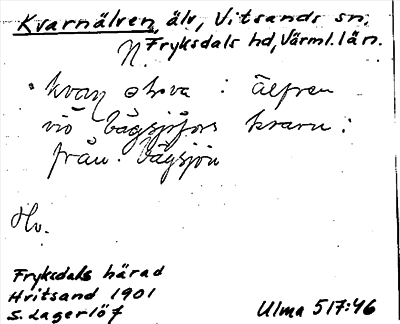 Kvarnälven, älv, Vitsands sn.
N. Fryksdals hd, Värml. län.
älfven
vid bågsjöfors kvarn:
från bågsjön
Hv.
Fryksdals härad
Hvitsand 1901
S. Lagerlöf
Ulma 517:46